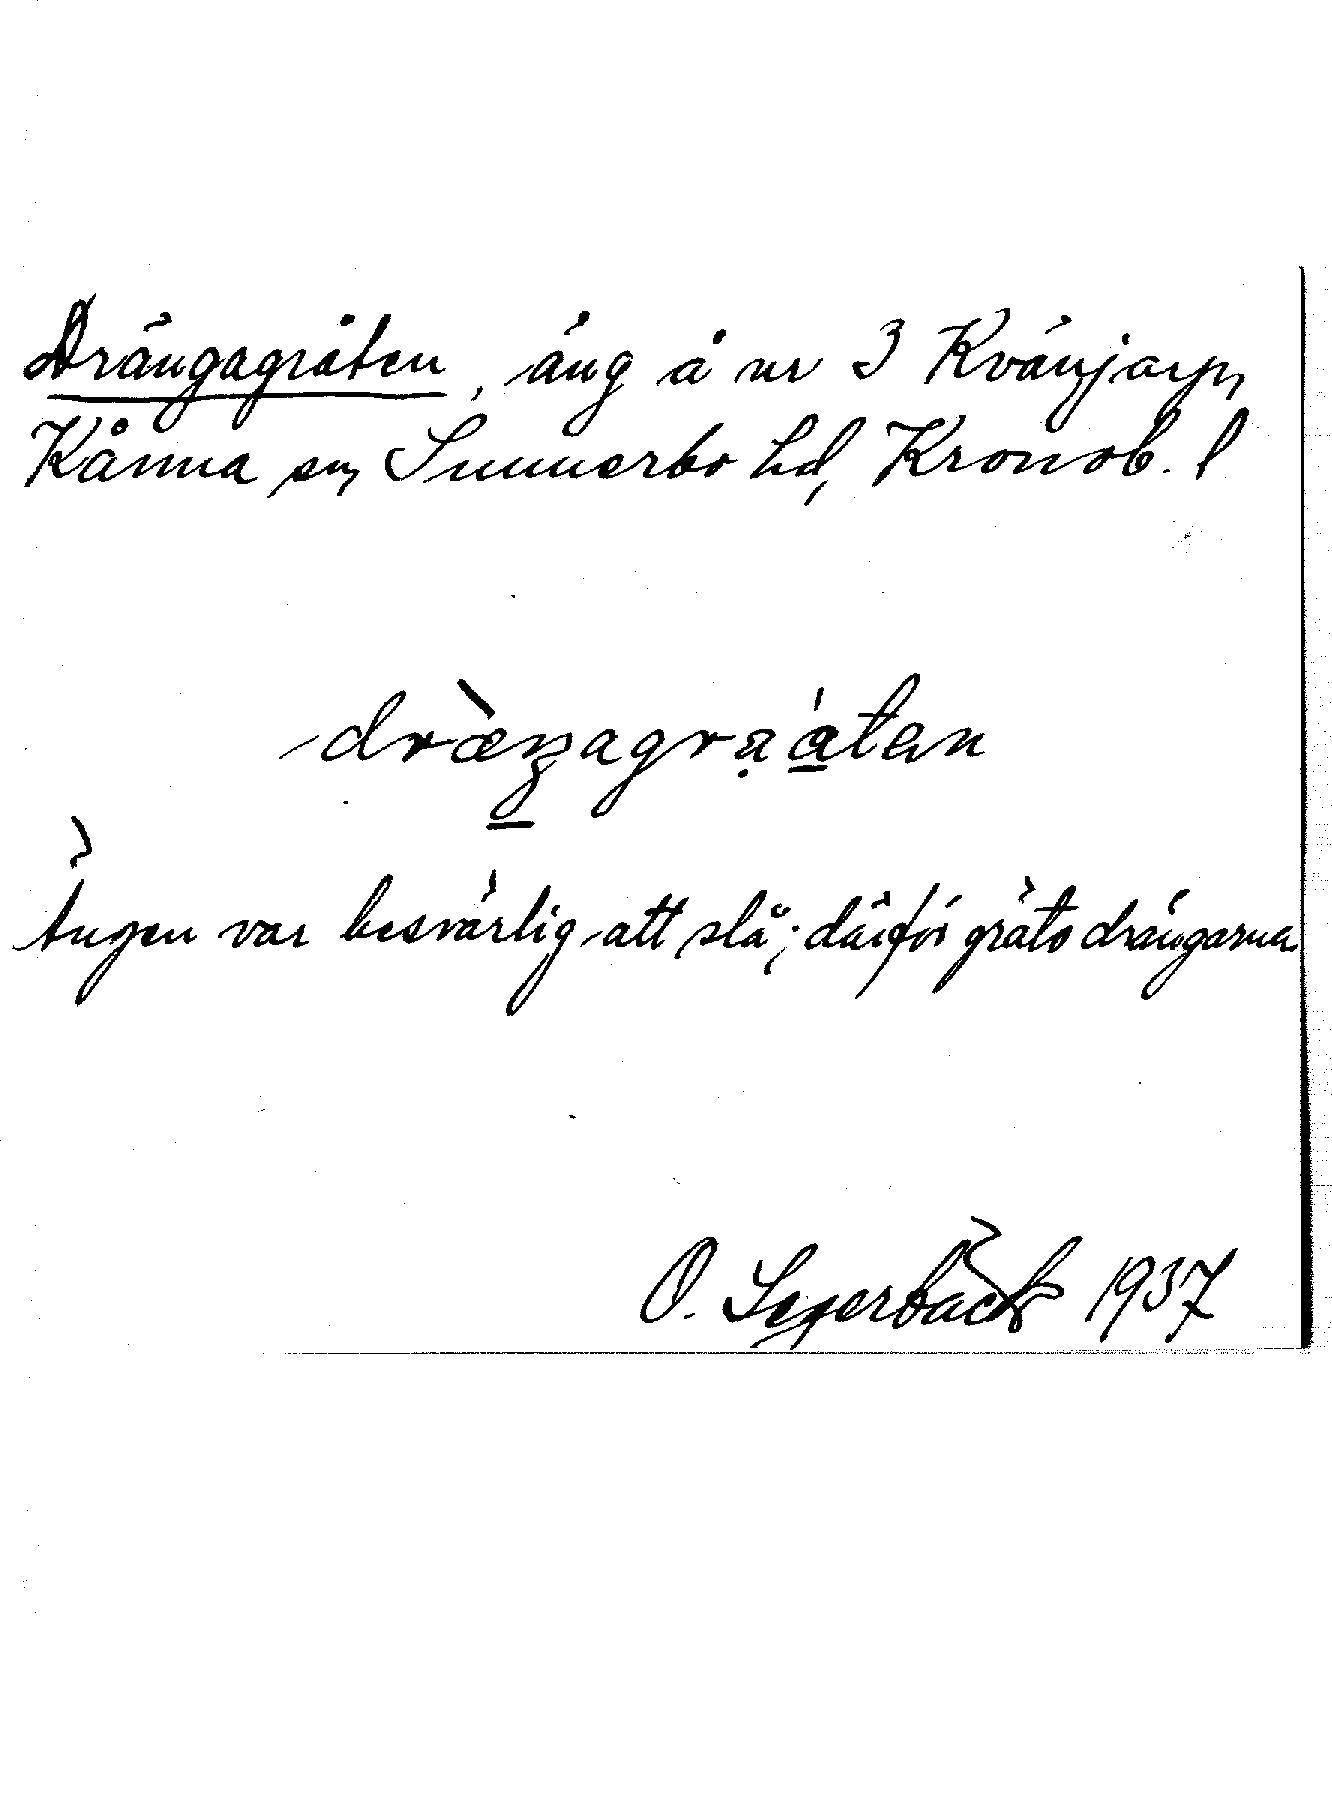 Drängagråten, äng å nr 3 Kvänjarp,
Kånna sn, Sunnerbo hd, Kronob. l
dræŋagraatan
Ängen var besvärlig att slå; därför gräto drängarna
O. Segerbäck 1937